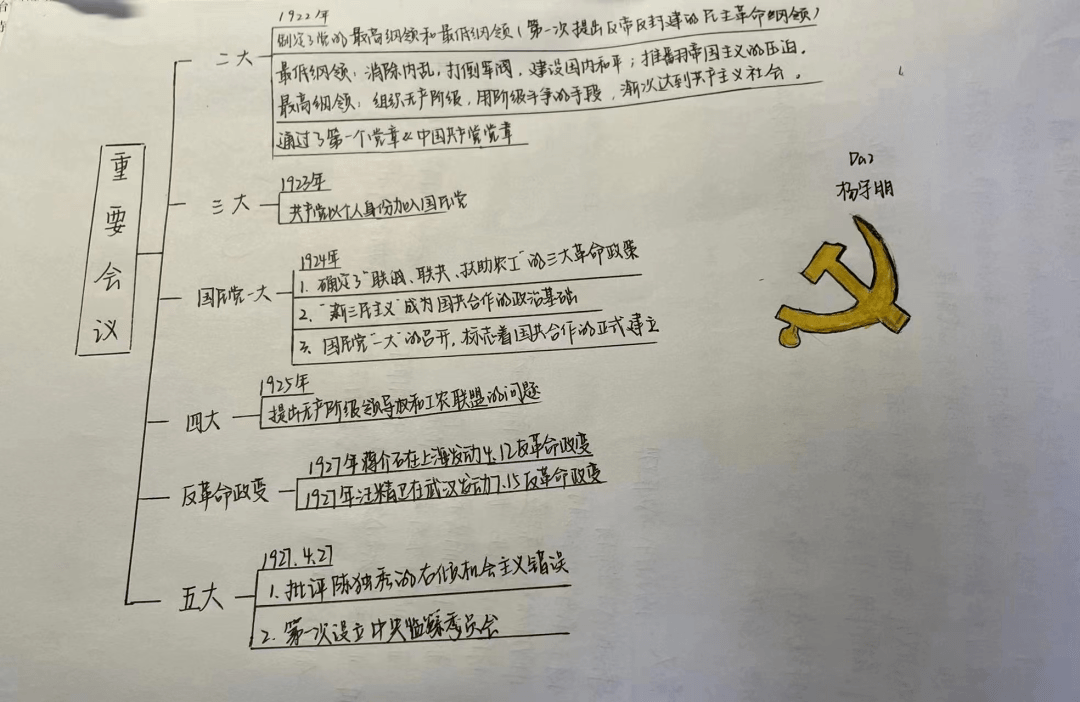 重要会议
二大
1922年
制定了党的最高纲领和最低纲领(第一次提出反帝反封建的民主革命纲领)
最低纲领:消除内乱,打倒军阀,建设国内和平;推翻帝国主义的压迫.
最高纲领:组织无产阶级,用阶级斗争的手段,渐次达到共产主义社会.
通过了第一个党章《中国共产党党章
三大
1923年
共产党以个人身份加入国民党
国民党一大
1924年
1.确定了"联俄、联共、扶助农工"的三大革命政策
2.“新三民主义”成为国共合作的政治基础
3、国民党“一大”的召开,标志着国共合作的正式建立
四大
1925年
提出无产阶级领导权和工农联盟的问题
反革命政变
1927年蒋介石在上海发动4.12反革命政变
1927年汪精卫在武汉发动7.15反革命政变
五大
1927.4.27
1.批评陈独秀的右倾机会主义错误
2.第一次设立中央监察委员会
Da2
杨宇明